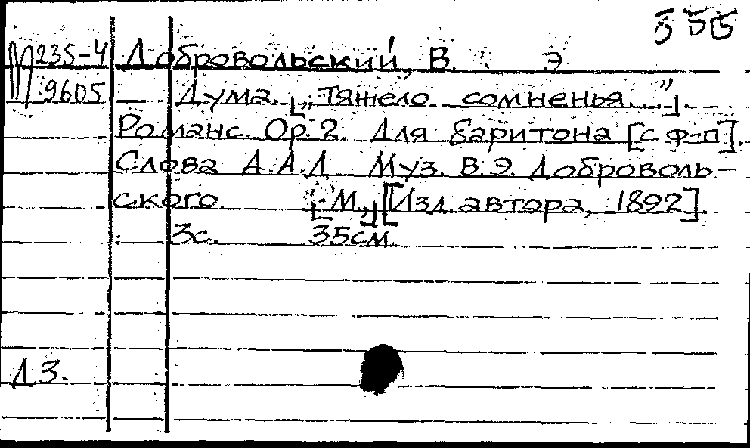 555
М 235-4 Добровольский, В. Э
9605 Дума. [„Тяжело сомненья..."].
Романс. Op. 2. Для баритона [с ф-п].
Слова А.А.Л. Муз. В.Э. Доброволь-
ского. [М.,] [Изд. автора, 1892].
3с. 35см.
ДЗ.